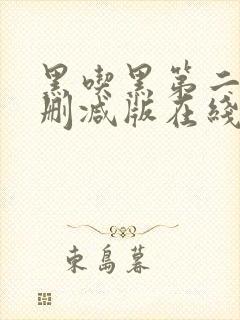 黑喫黑第二
刪減版在綫
東島暮